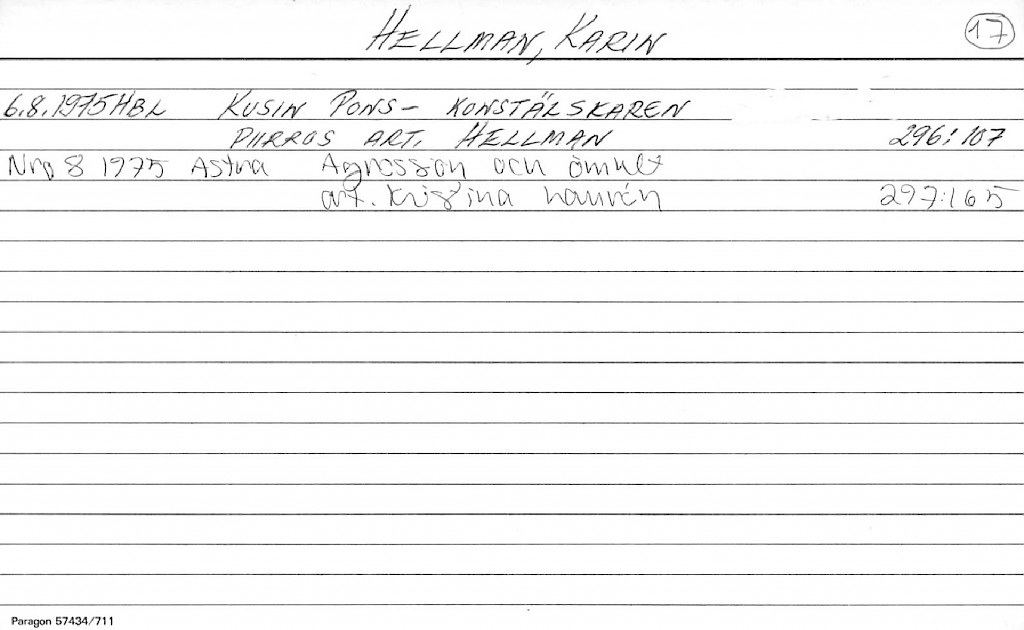 HELLMAN, KARIN 17
6.8.1975 HBL KUSIN PONS- KONSTÄLSKAREN
PIIRROS ART. HELLMAN 296:107
Nro 8 1975 Astra Agression och ömhet
art. Kristina 297:165
Paragon 57434/711